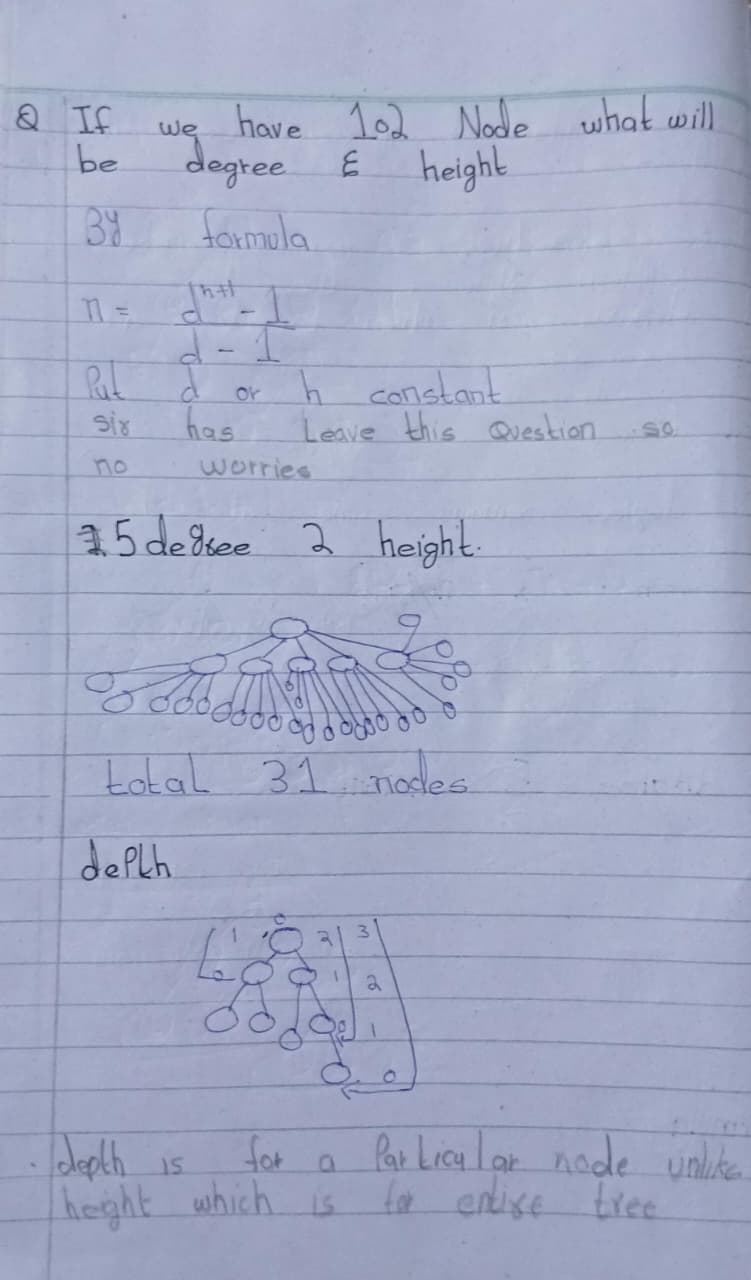 Q If we have 102 Node what will
be degree & height
By formula
n = d^h+1 - 1
d - 1
Put d or h constant
sir has Leave this Question so
no worries
5 degree 2 height.
total 31 nodes
depth
1 2 3
0 1 2
0 1
0
. depth is for a Particular node unlike
height which is for entire tree